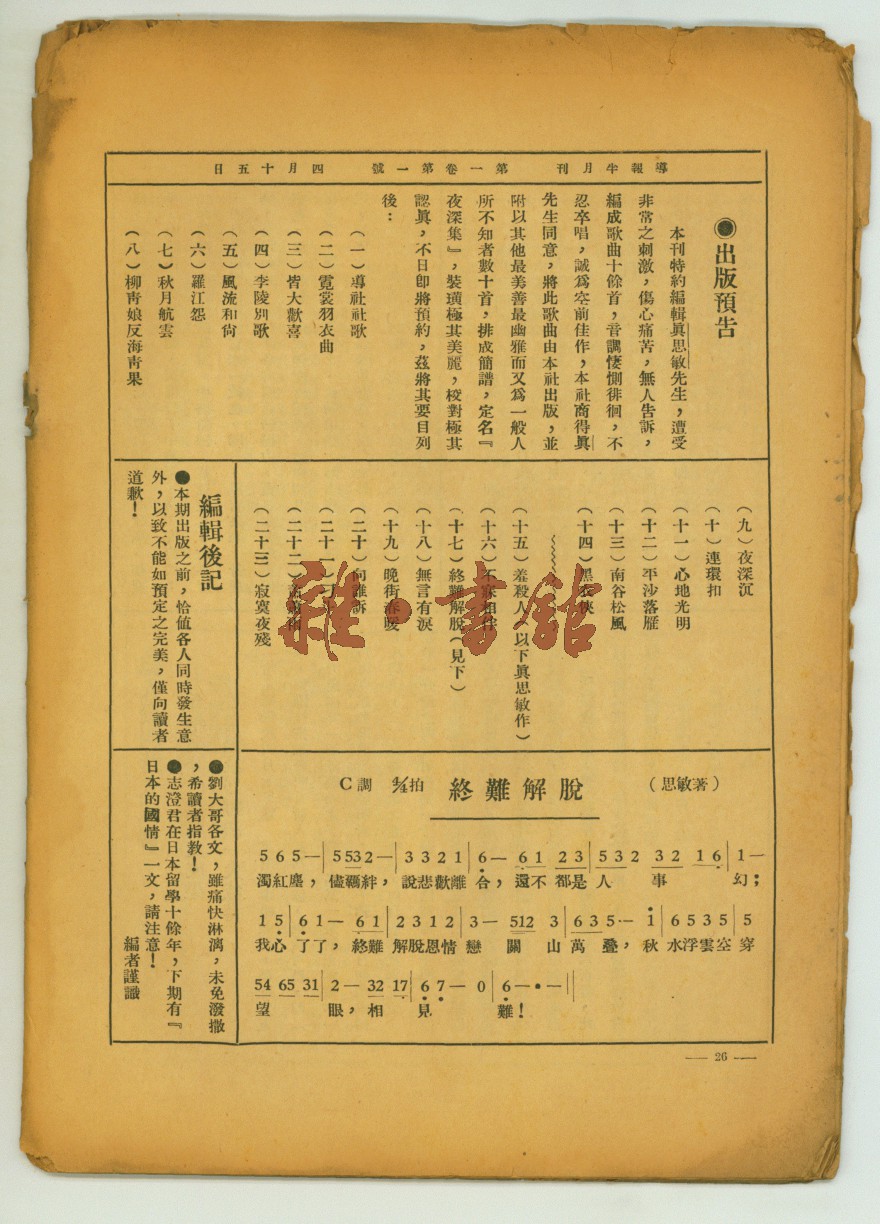 導報半月刊　第一卷第一號　四月十五日
●出版預告
本刊特約編輯眞思敏先生，遭受
非常之刺激，傷心痛苦，無人告訴，
編成歌曲十餘首，音調悽惻徘徊，不
忍卒唱，誠爲空前佳作，本社商得眞
先生同意，將此歌曲由本社出版，並
附以其他最美善最幽雅而又爲一般人
所不知者數十首，排成簡譜，定名『
夜深集』，裝璜極其美麗，校對極其
認眞，不日卽將預約，茲將其要目列
後：
（一）導社社歌
（二）霓裳羽衣曲
（三）皆大歡喜
（四）李陵別歌
（五）風流和尙
（六）羅江怨
（七）秋月航雲
（八）柳靑娘反海靑果
（九）夜深沉
（十）連環扣
（十一）心地光明
（十二）平沙落雁
（十三）南谷松風
（十四）黑衣俠
（十五）羞殺人（以下眞思敏作）
（十六）不寐相伴
（十七）終難解脫（見下）
（十八）無言有淚
（十九）晚街春暖
（二十）向誰訴
（二十一）
（二十二）
（二十三）寂寞夜殘
編輯後記
●本期出版之前，恰値各人同時發生意
外，以致不能如預定之完美，僅向讀者
道歉！
●劉大哥各文，雖痛快淋漓，未免潑撒
，希讀者指敎！
●志澄君在日本留學十餘年，下期有『
日本的國情』一文，請注意！
編者謹識
C調　4/4拍　終難解脫　（思敏著）
5 6 5 — | 5 53 2 — | 3 3 2 1 | 6 — 6 1 2 3 | 5 3 2 3 2 1 6 | 1 —
濁紅塵，儘羈絆，說悲歡離合，還不都是人事幻；
1 5 | 6 1 — 6 1 | 2 3 1 2 | 3 — 512 3 | 6 3 5 ·— 1 | 6 5 3 5 | 5
我心了了，終難解脫恩情戀關山萬疊，秋水浮雲空穿
54 65 31 | 2 — 32 17 | 6 7 — 0 | 6 — · — ||
望眼，相見難！
— 26 —
雜·書館